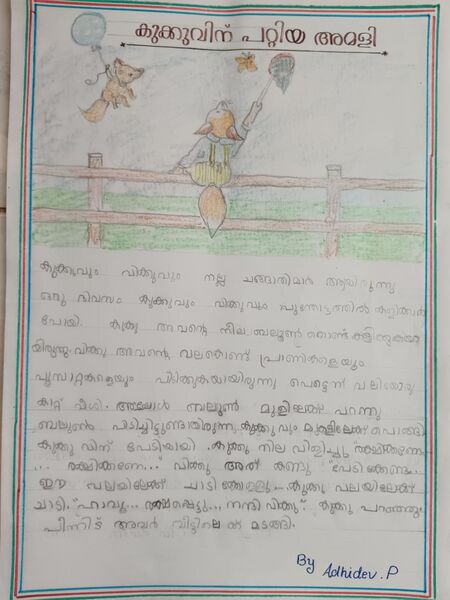 കുക്കുവിന് പറ്റിയ അമളി
കുക്കുവും വിക്കുവും നല്ല ചങ്ങാതിമാർ ആയിരുന്നു
ഒരു ദിവസം കുക്കുവും വിക്കുവും പൂന്തോട്ടത്തിൽ കളിക്കാൻ
പോയി. കുക്കു അവന്റെ നീല ബലൂൺ കൊണ്ട് കളിക്കുകയാ
യിരുന്നു. വിക്കു അവന്റെ വലകൊണ്ട് പ്രാണികളെയും
പൂമ്പാറ്റകളെയും പിടിക്കുകയായിരുന്നു പെട്ടെന്ന് വലിയൊരു
കാറ്റ് വീശി. അപ്പോൾ ബലൂൺ മുകളിലേക്ക് പറന്നു
ബലൂൺ പിടിച്ചിട്ടുണ്ടായിരുന്ന കുക്കുവും മുകളിലേക്ക് പൊങ്ങി
കുക്കുവിന് പേടിയായി. കുക്കു നില വിളിച്ചു "രക്ഷിക്കണേ...
... രക്ഷിക്കണേ..." വിക്കു അത് കണ്ടു "പേടിക്കേണ്ട...
ഈ വലയിലേക്ക് ചാടിക്കോളൂ... കുക്കു വലയിലേക്ക്
ചാടി. "ഹാവൂ... രക്ഷപ്പെട്ടു... നന്ദി വിക്കു". കുക്കു പറഞ്ഞു.
പിന്നീട് അവർ വീട്ടിലേക്ക് മടങ്ങി.
By Adhidev.P